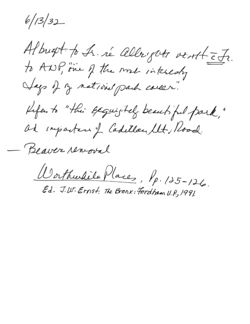 6/13/32
Albright to Jr. re Albright's visit c̄ Jr.
to ANP, "one of the most interesting
days of my national park career".
Refers to "this exquisitely beautiful park,"
and importance of Cadillac Mt. Road.
— Beaver removal
Worthwhile Places, Pp. 125-126.
Ed. J.W. Ernst. The Bronx: Fordham U.P., 1991